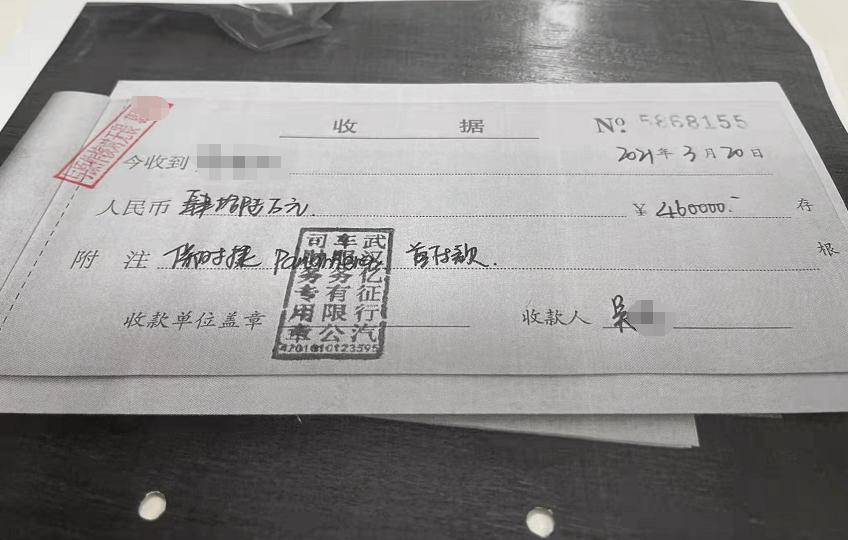 收 据
Nº 5868155
今收到
2021年3月20日
人民币 肆拾陆万元.
¥ 460000.-
存根
附 注 保时捷 Panamera 首付款.
收款单位盖章
收款人 吴
武汉亿征行汽
车服务有限公
司财务专用章